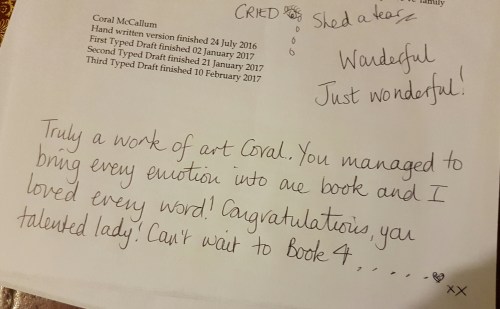 family
CRIED
Shed a tear
Coral McCallum
Hand written version finished 24 July 2016
First Typed Draft finished 02 January 2017
Second Typed Draft finished 21 January 2017
Third Typed Draft finished 10 February 2017
Wonderful
Just wonderful!
Truly a work of art Coral. You managed to
bring every emotion into one book and I
loved every word! Congratulations, you
talented lady! Can't wait to Book 4......
xx